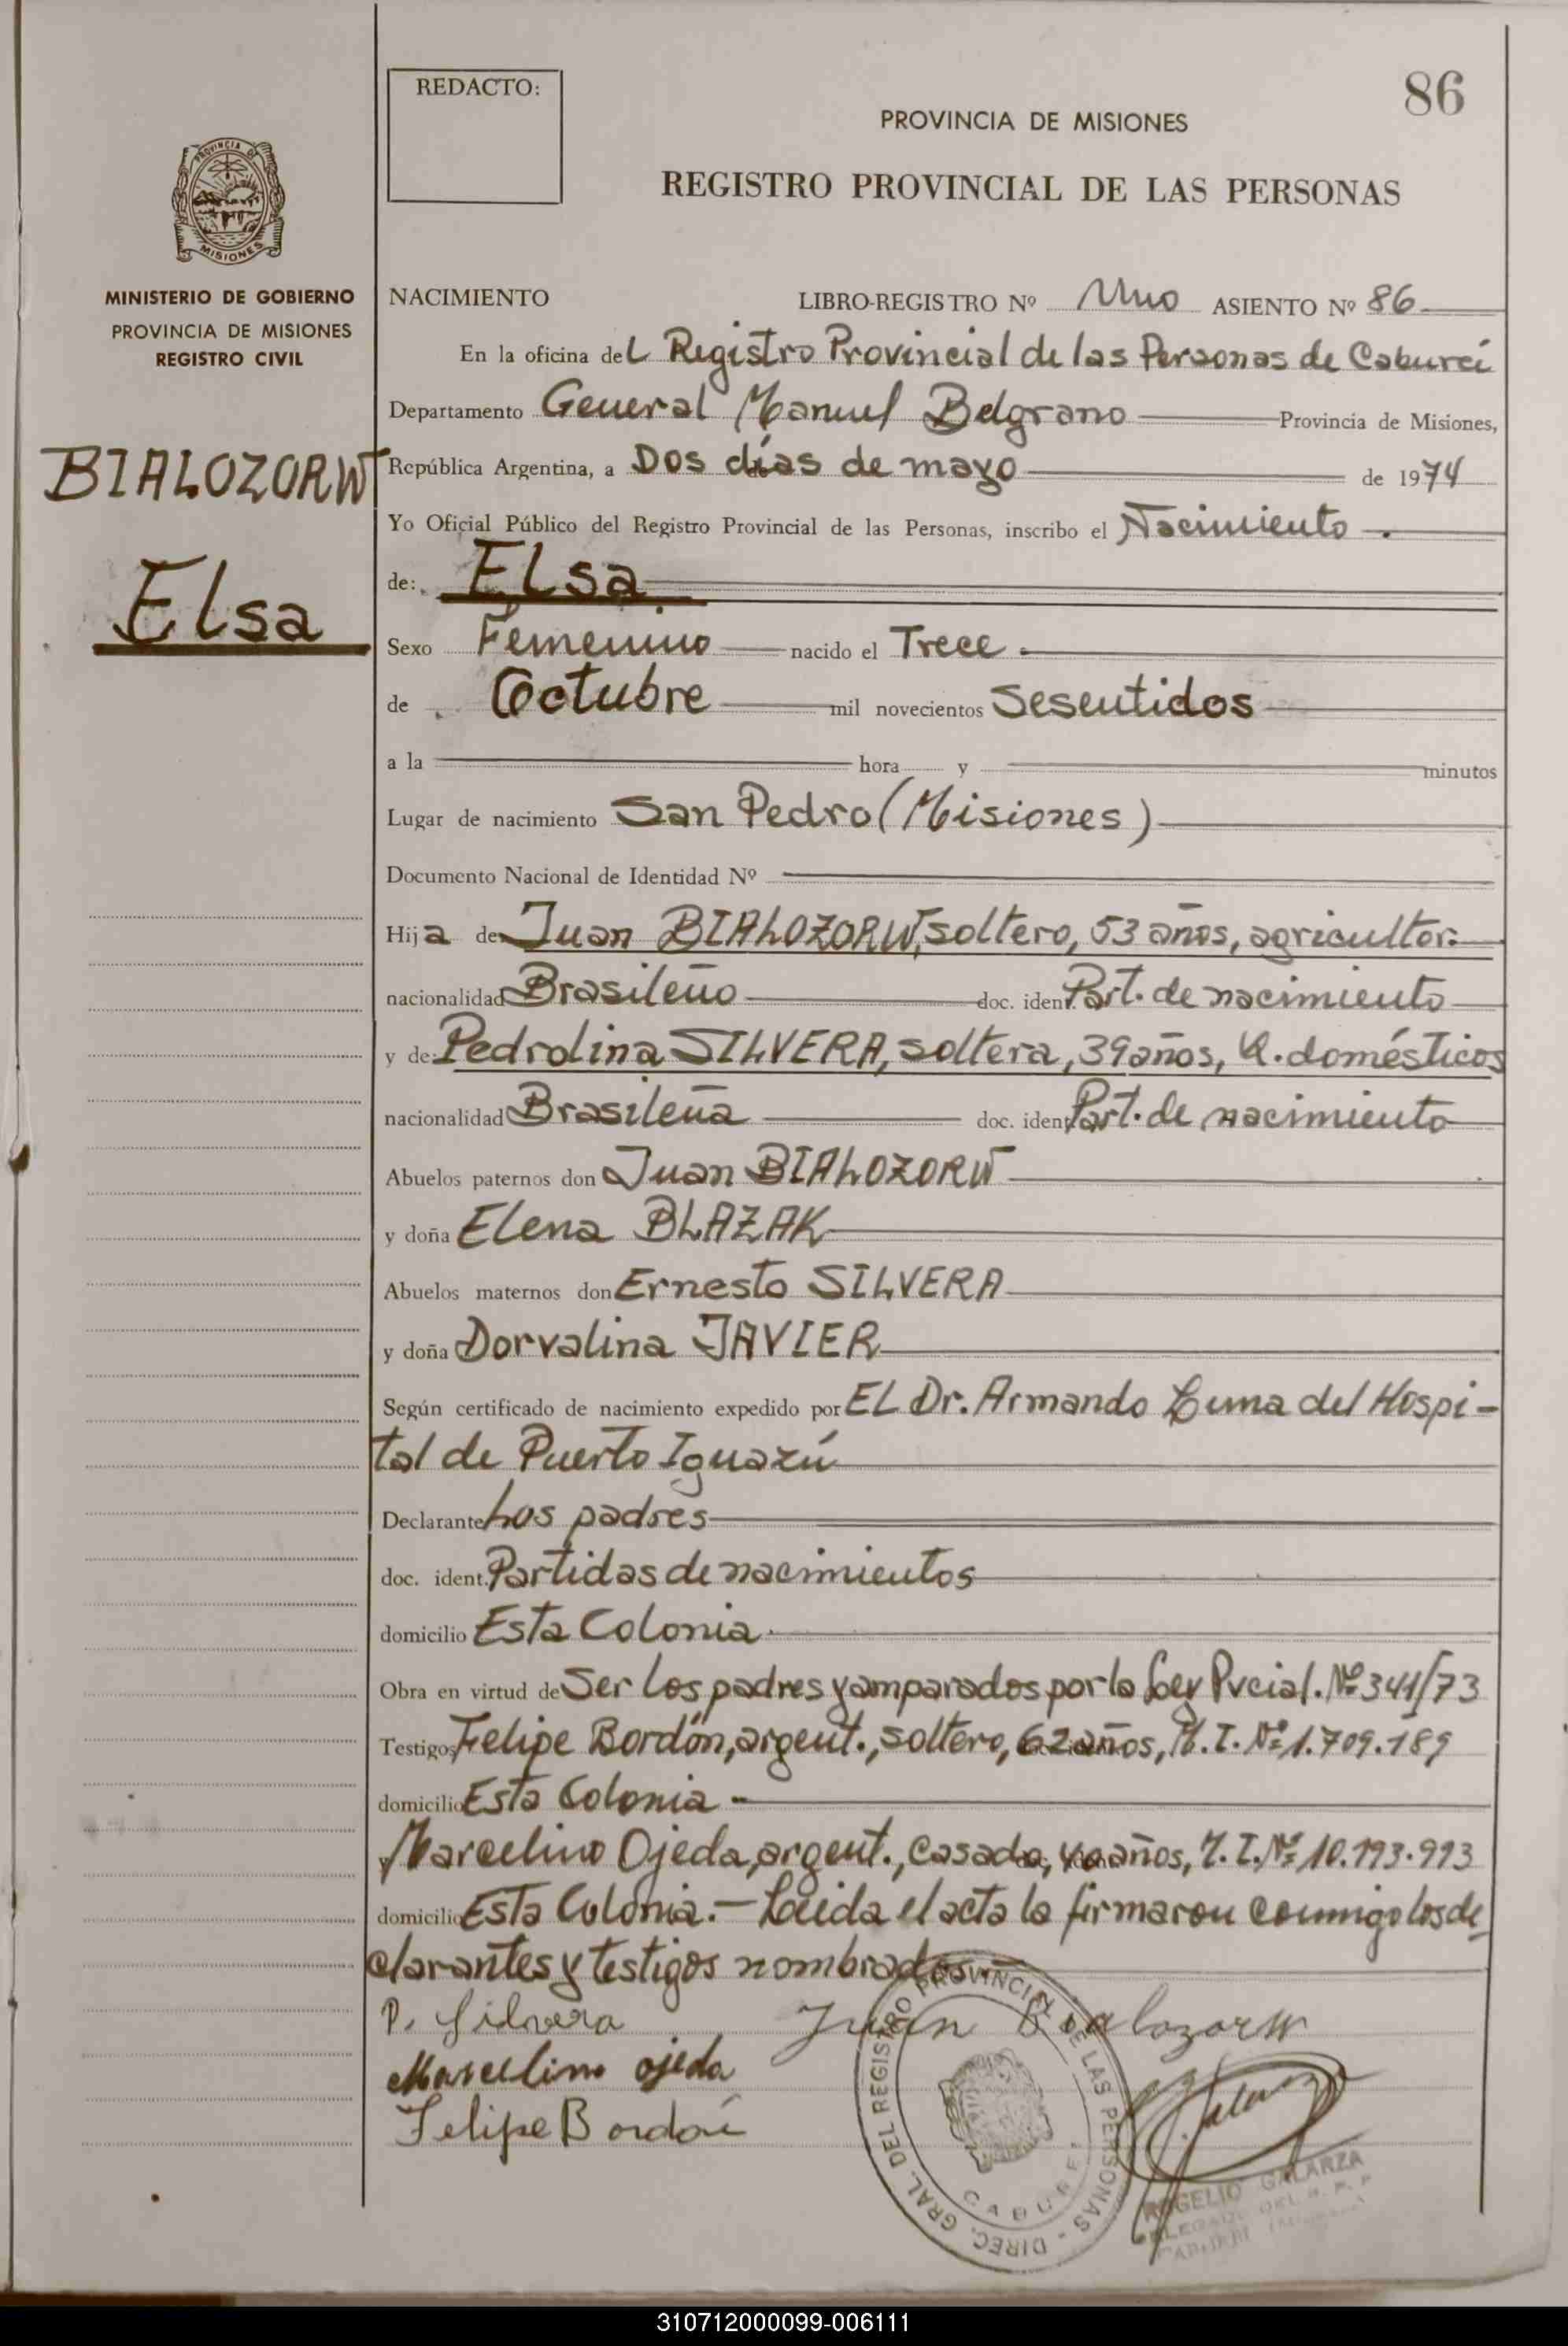 86
REDACTO:
PROVINCIA DE MISIONES
REGISTRO PROVINCIAL DE LAS PERSONAS
PROVINCIA DE
MISIONES
MINISTERIO DE GOBIERNO
PROVINCIA DE MISIONES
REGISTRO CIVIL
BIALOZORW
Elsa
NACIMIENTO LIBRO-REGISTRO Nº Uno ASIENTO Nº 86
En la oficina del Registro Provincial de las Personas de Caburei
Departamento General Manuel Belgrano Provincia de Misiones,
República Argentina, a Dos días de mayo de 1974
Yo Oficial Público del Registro Provincial de las Personas, inscribo el Nacimiento.
de: Elsa
Sexo Femenino nacido el Trece.
de Octubre mil novecientos Sesentidos
a la hora y minutos
Lugar de nacimiento San Pedro (Misiones)
Documento Nacional de Identidad Nº
Hija de Juan BIALOZORW, soltero, 53 años, agricultor.
nacionalidad Brasileño doc. ident. Part. de nacimiento
y de: Pedrolina SILVERA, soltera, 39 años, Q. domésticos
nacionalidad Brasileña doc. ident. Part. de nacimiento
Abuelos paternos don Juan BIALOZORW
y doña Elena BLAZAK
Abuelos maternos don Ernesto SILVERA
y doña Dorvalina JAVIER
Según certificado de nacimiento expedido por EL Dr. Armando Luna del Hospi-
tal de Puerto Iguazú
Declarante Los padres
doc. ident. Partidas de nacimientos
domicilio Esta Colonia.
Obra en virtud de Ser los padres y amparados por la Ley Pvcial. Nº 341/73
Testigos Felipe Bordón, argent., soltero, 62 años, M. I. Nº 1.709.189
domicilio Esta Colonia -
y Marcelino Ojeda, argent., casado, años, M. I. Nº 10.193.993
domicilio Esta Colonia.- Leida el acta la firmaron conmigo los de
clarantes y testigos nombrados.-
P. Silvera Juan Bialozorw
Marcelino ojeda
Felipe Bordón
DIREC. GRAL. DEL REGISTRO PROVINCIAL DE LAS PERSONAS - CABUREI
ROGELIO GALARZA
DELEGADO DEL R. P. P.
CABUREI (Misiones)
310712000099-006111